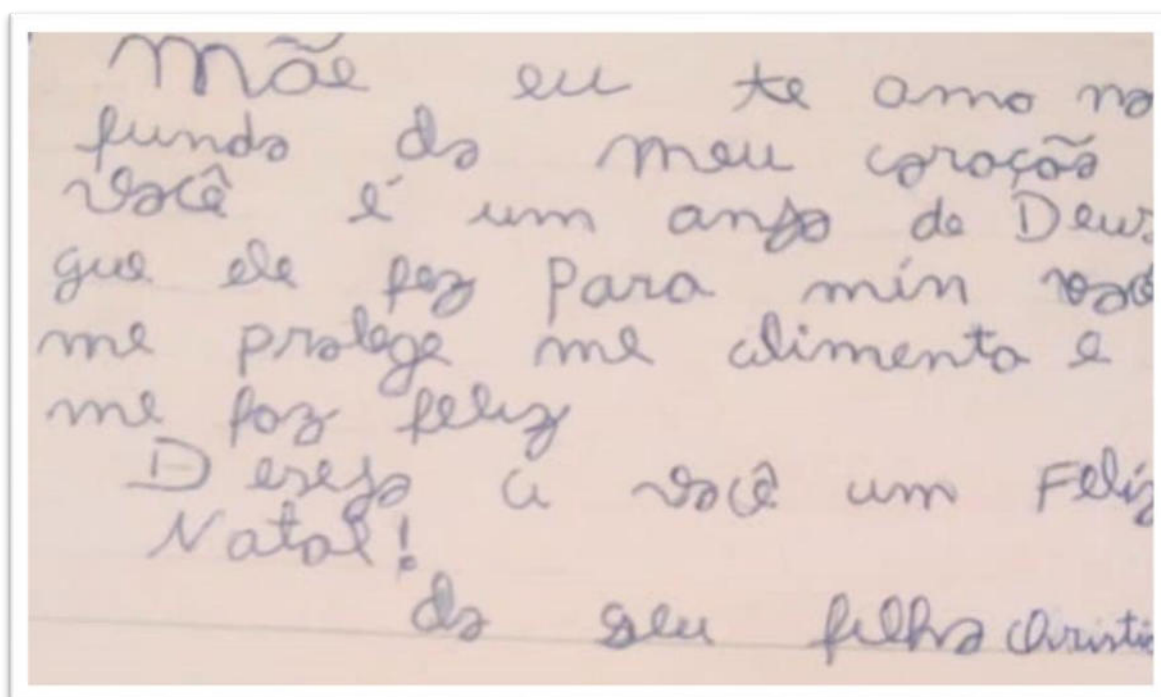 Mãe eu te amo no
fundo do meu coração
você é um anjo de Deus
que ele fez Para min você
me protege me alimenta e
me faz feliz
Desejo a você um Feliz
Natal!
do seu filho Christi